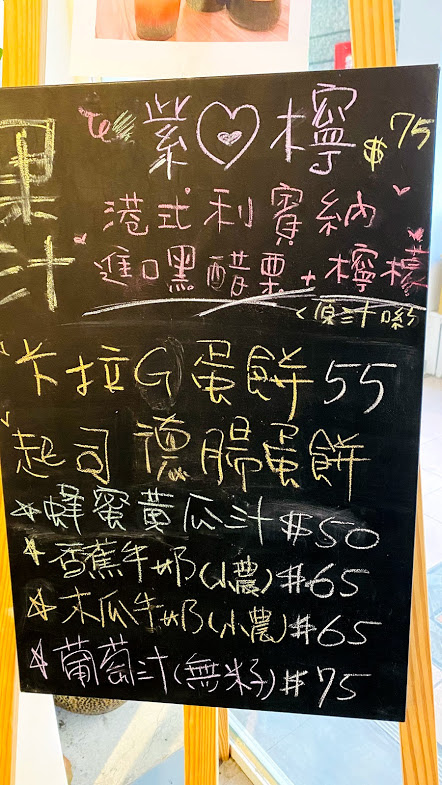 果汁
紫♡檸 $75
港式利賓納
進口黑醋栗+檸檬
(原汁喲
卡拉G蛋餅55
起司德腸蛋餅
蜂蜜黃瓜汁$50
香蕉牛奶(小農)$65
木瓜牛奶(小農)$65
葡萄汁(無籽)$75